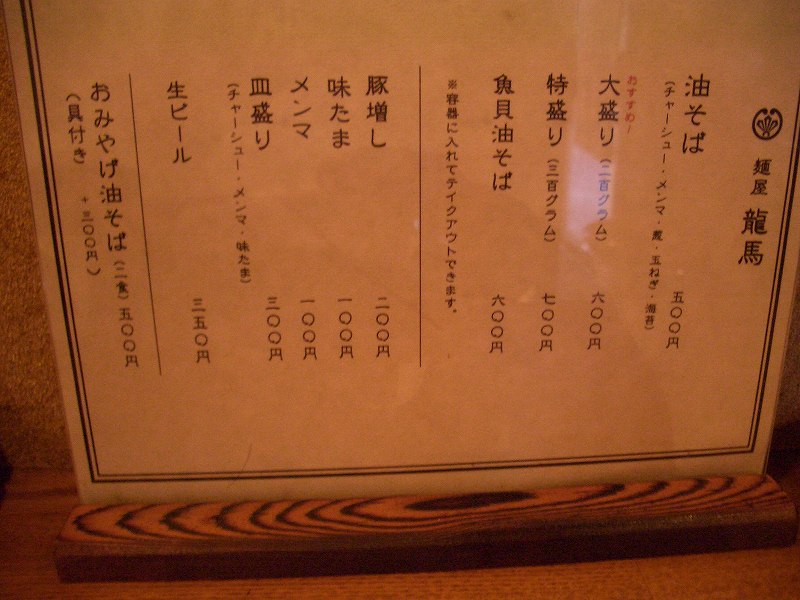 麺屋 龍馬
油そば 五〇〇円
（チャーシュー・メンマ・葱・玉ねぎ・海苔）
おすすめ！
大盛り（二百グラム） 六〇〇円
特盛り（三百グラム） 七〇〇円
魚貝油そば 六〇〇円
※容器に入れてテイクアウトできます。
豚増し 二〇〇円
味たま 一〇〇円
メンマ 一〇〇円
皿盛り 三〇〇円
（チャーシュー・メンマ・味たま）
生ビール 三五〇円
おみやげ油そば（二食） 五〇〇円
（具付き ＋三〇〇円）